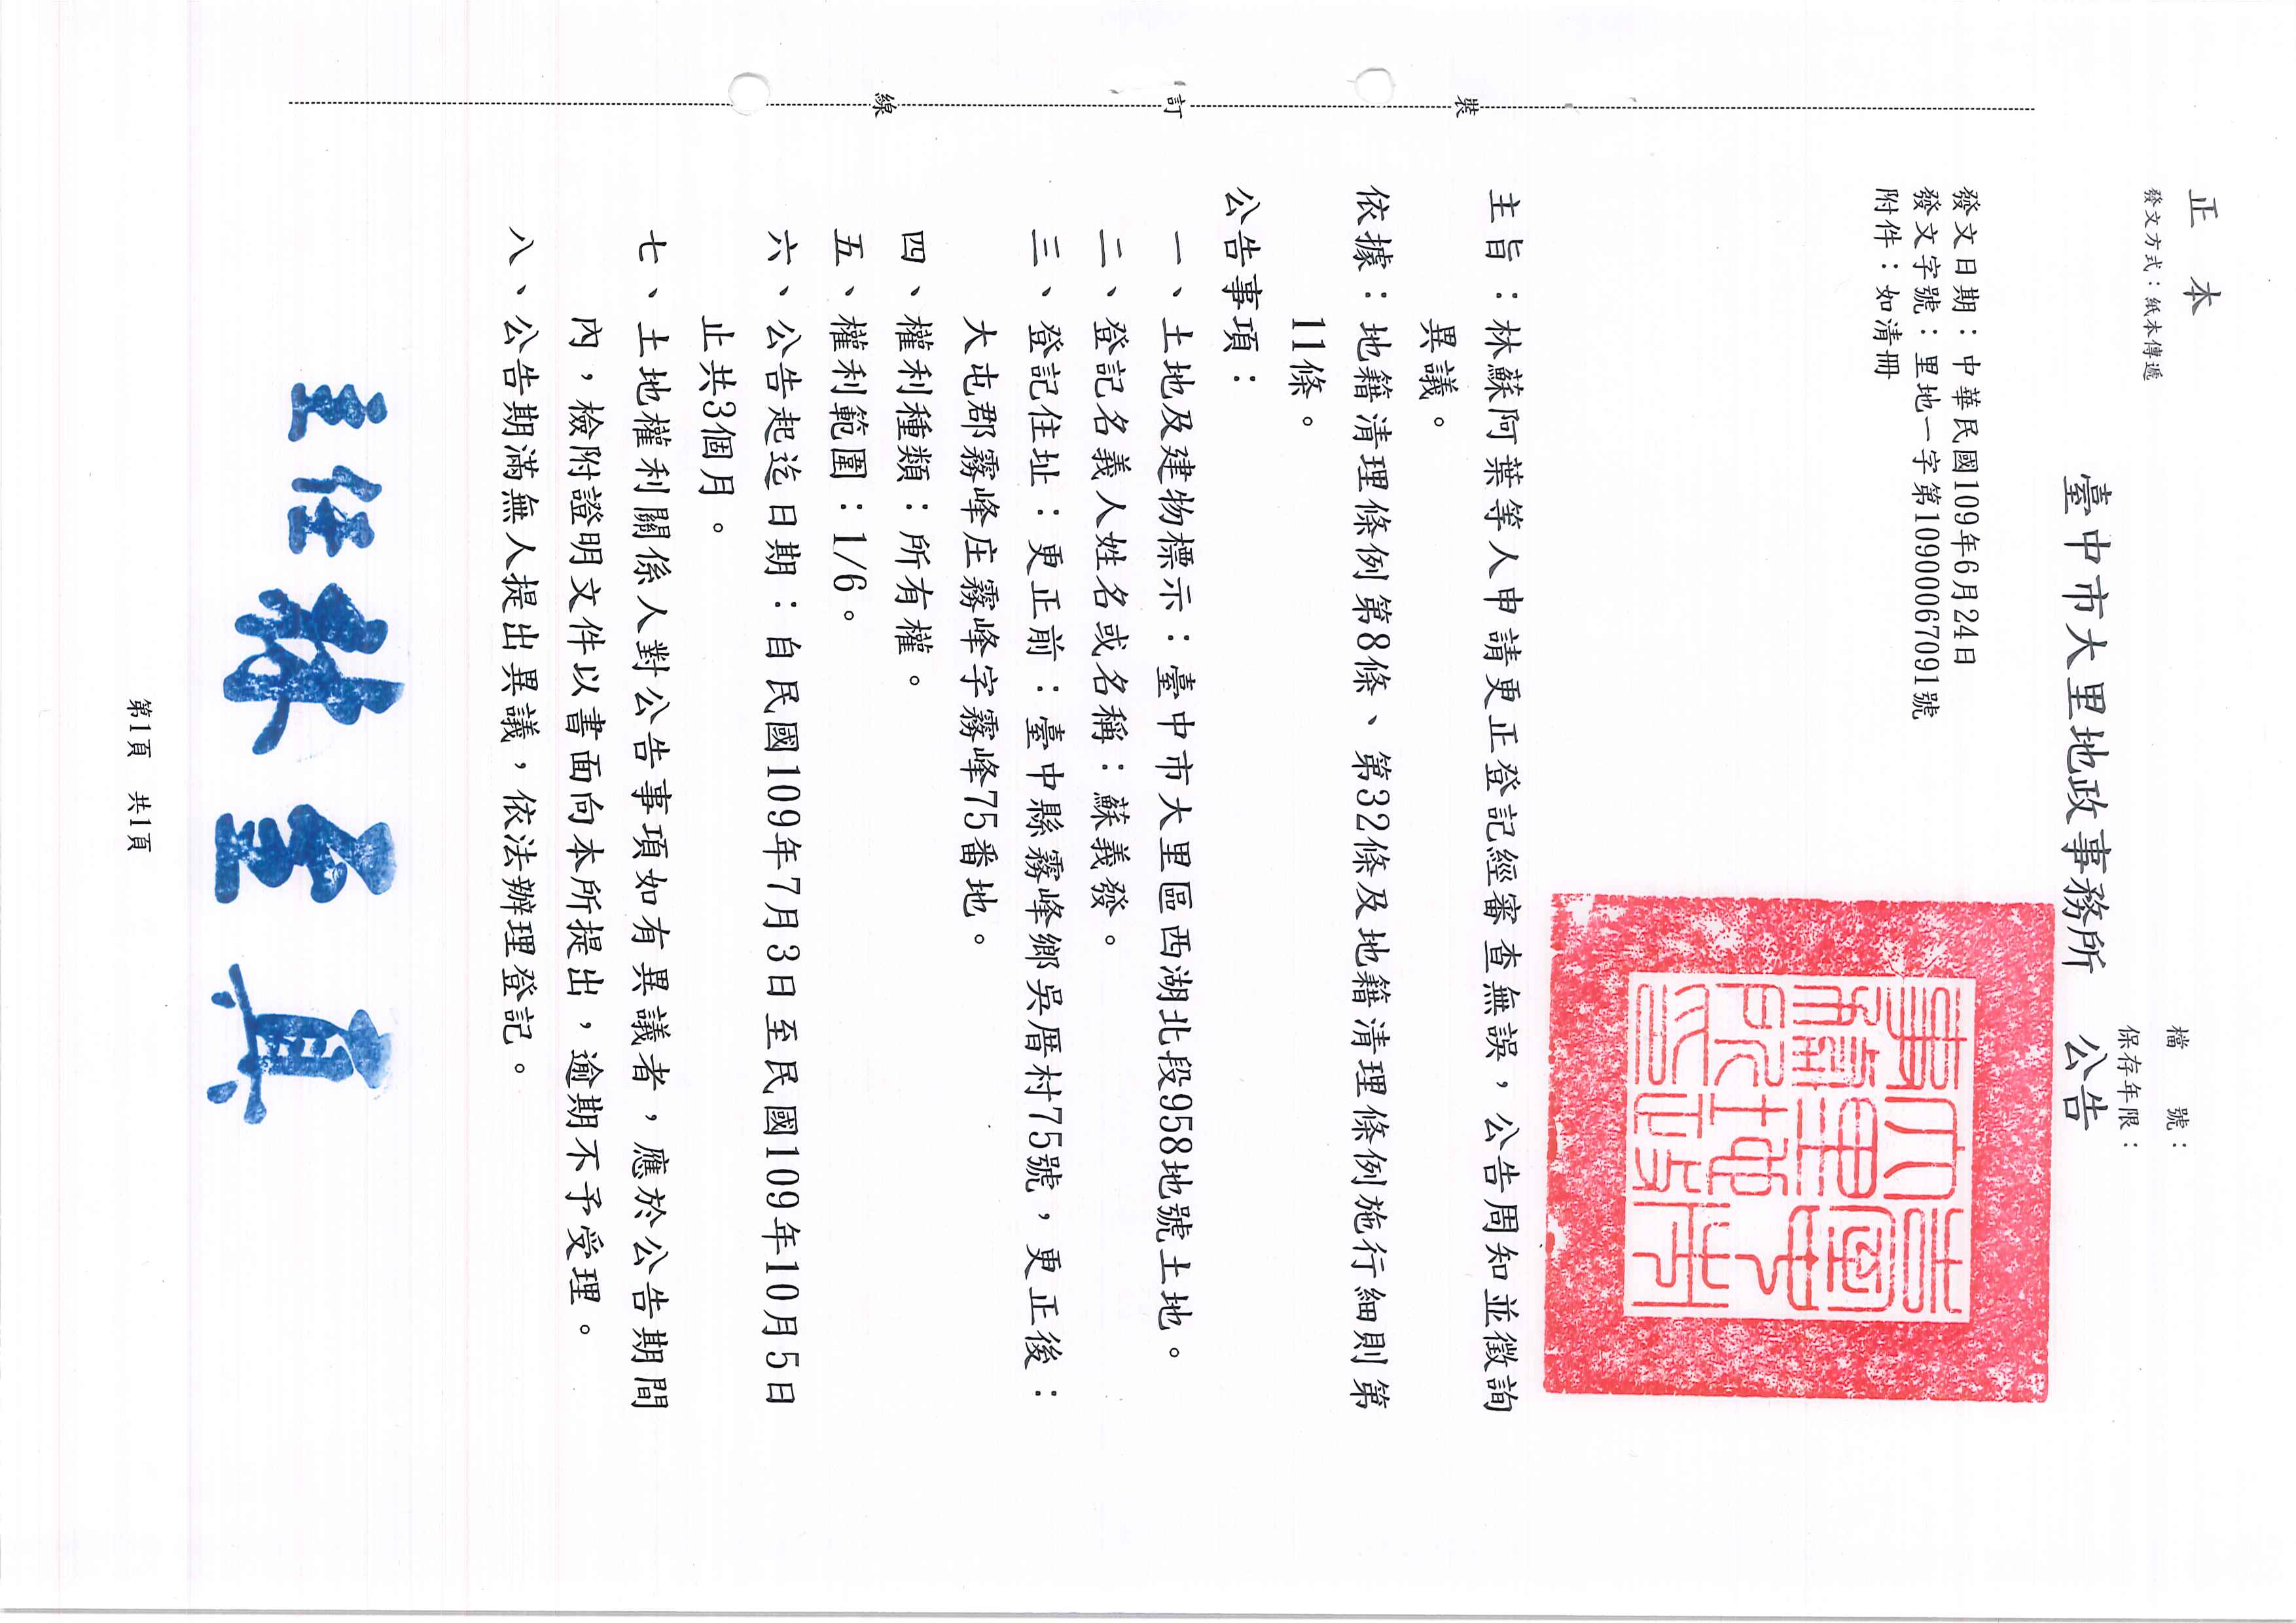 正本
發文方式：紙本傳遞
檔　　號：
保存年限：
臺中市大里地政事務所　公告
發文日期：中華民國109年6月24日
發文字號：里地一字第1090006709１號
附件：如清冊
主旨：林蘇阿葉等人申請更正登記經審查無誤，公告周知並徵詢
異議。
依據：地籍清理條例第8條、第32條及地籍清理條例施行細則第
11條。
公告事項：
一、土地及建物標示：臺中市大里區西湖北段958地號土地。
二、登記名義人姓名或名稱：蘇義發。
三、登記住址：更正前：臺中縣霧峰鄉吳厝村75號，更正後：
大屯郡霧峰庄霧峰字霧峰75番地。
四、權利種類：所有權。
五、權利範圍：1/6。
六、公告起迄日期：自民國109年7月3日至民國109年10月5日
止共3個月。
七、土地權利關係人對公告事項如有異議者，應於公告期間
內，檢附證明文件以書面向本所提出，逾期不予受理。
八、公告期滿無人提出異議，依法辦理登記。
主任
第1頁　共1頁
裝
訂
線